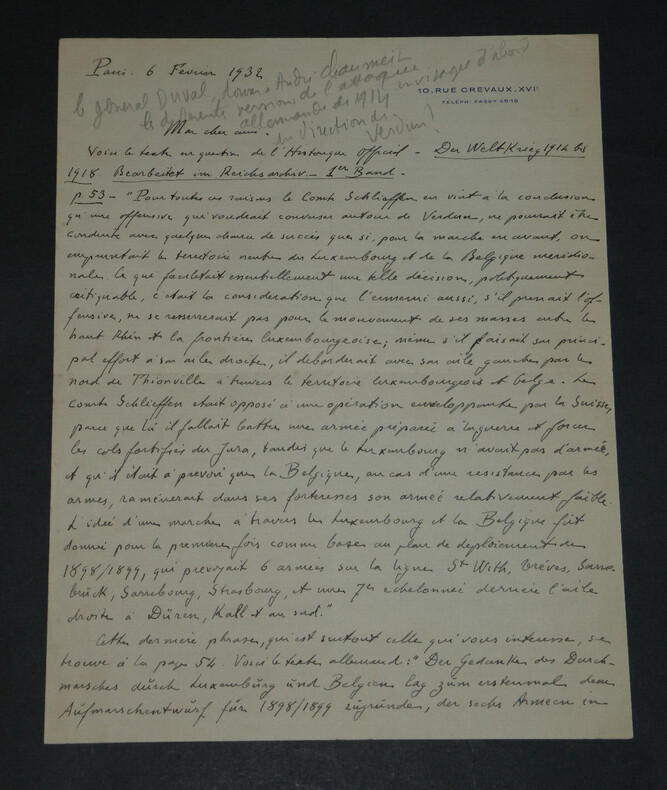 Paris. 6 Février 1932
le général Duval, donne à André Chaumeix
la différente version de l'attaque envisagée d'abord
allemande de 1914
en direction de
Verdun!
10, RUE CREVAUX. XVIᵉ
TELÉPH. PASSY 45-19
Mon cher ami.
Voici le texte en question de l'Historique officiel - Der Weltkrieg 1914 bis
1918. Bearbeitet im Reichsarchiv - 1er Band.
p. 53 - "Pour toutes ces raisons le Comte Schlieffen en vint à la conclusion
qu'une offensive qui voudrait converser autour de Verdun, ne pourrait être
conduite avec quelque chance de succès que si, pour la marche en avant, on
empruntait le territoire neutre du Luxembourg et de la Belgique méridio-
nale. Ce qui facilitait essentiellement une telle décision, politiquement
critiquable, c'était la considération que l'ennemi aussi, s'il prenait l'of-
fensive, ne se resserrerait pas pour le mouvement de ses masses entre le
haut Rhin et la frontière luxembourgeoise; même s'il faisait son princi-
pal effort à son aile droite, il déborderait avec son aile gauche par le
nord de Thionville à travers le territoire luxembourgeois et belge. Le
Comte Schlieffen était opposé à une opération enveloppante par la Suisse,
parce que là il fallait battre une armée préparée à la guerre et forcer
les cols fortifiés du Jura, tandis que le Luxembourg n'avait pas d'armée,
et qu'il était à prévoir que la Belgique, au cas d'une résistance par les
armes, ramènerait dans ses forteresses son armée relativement faible.
L'idée d'une marche à travers le Luxembourg et la Belgique fut
donnée pour la première fois comme base au plan de déploiement de
1898/1899, qui prévoyait 6 armées sur la ligne St With, Trèves, Sarre-
brück, Sarrebourg, Strasbourg, et une 7e échelonnée derrière l'aile
droite à Düren, Kall et au sud."
Cette dernière phrase, qui est surtout celle qui vous intéresse, se
trouve à la page 54. Voici le texte allemand: "Der Gedanke des Durch-
marsches durch Luxemburg und Belgien lag zum erstenmal dem
Aufmarschentwurf für 1898/1899 zugrunde, der sechs Armeen in